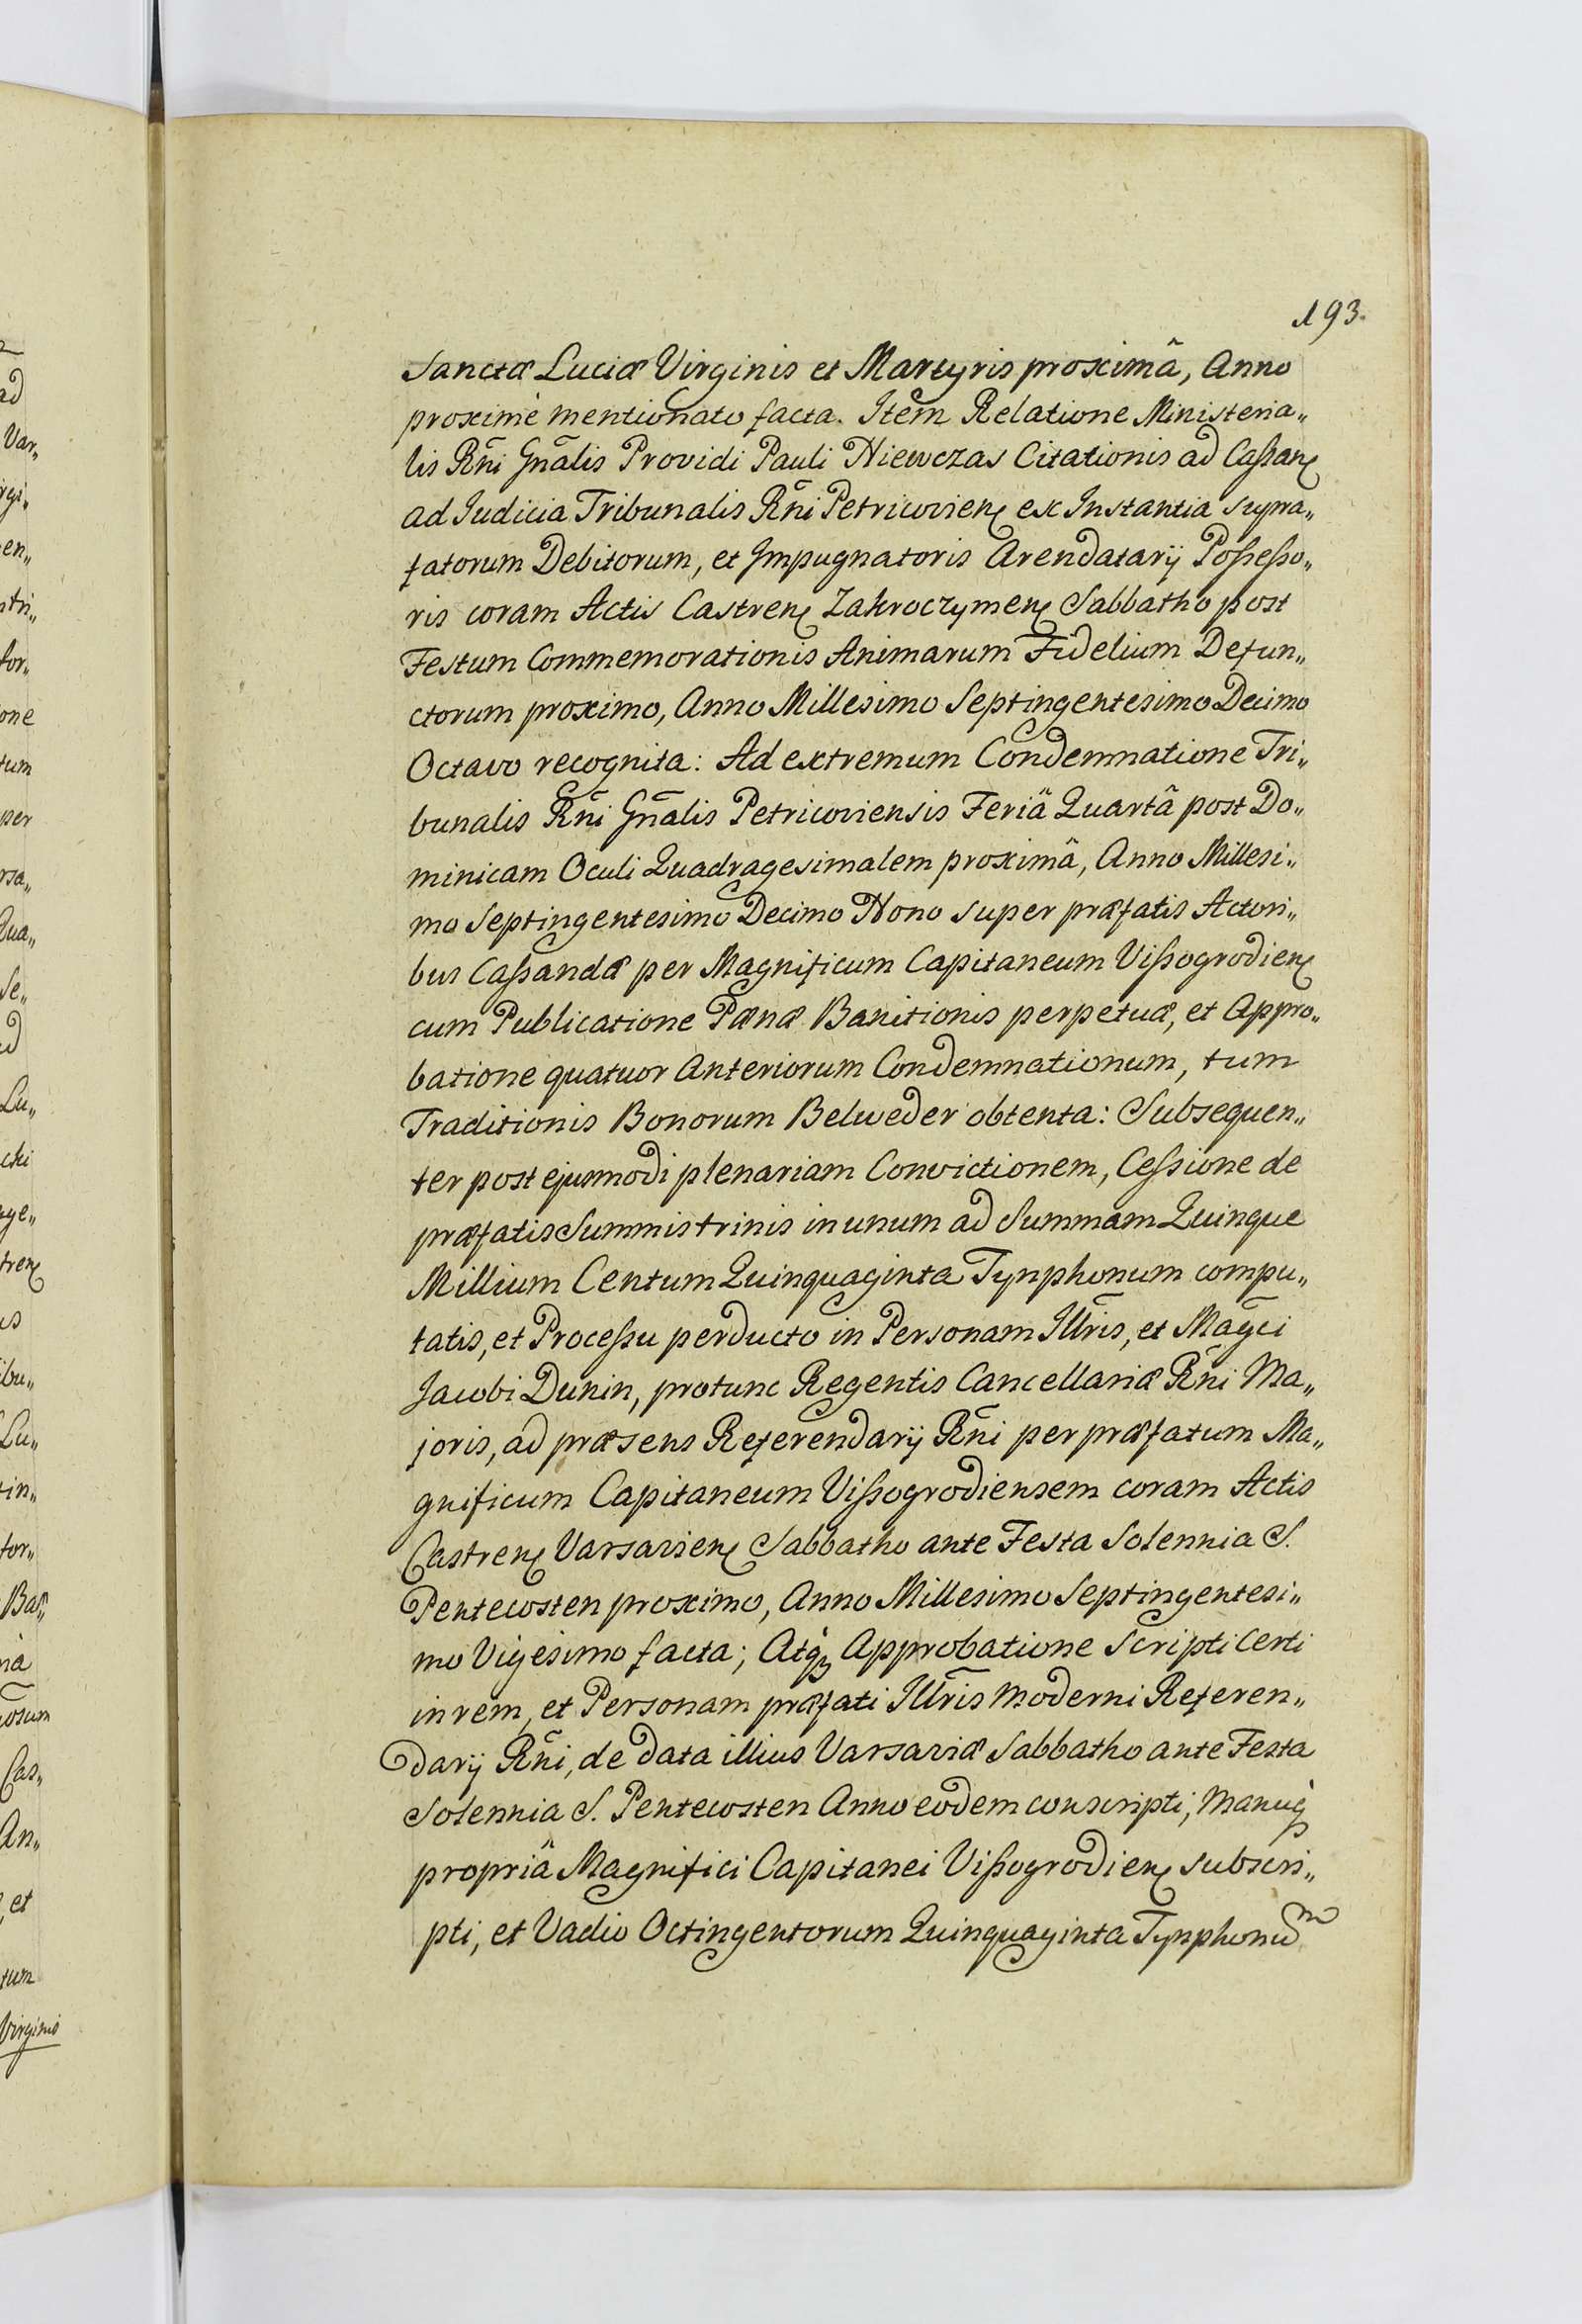 193.
Sanctæ Luciæ Virginis et Martyris proximâ, Anno
proximè mentionato facta. Item Relatione Ministeria„
lis Rñi Gñalis Providi Pauli Niewczas Citationis ad Cassañ
ad Judicia Tribunalis Rñi Petricovien̄ ex Instantia supra„
fatorum Debitorum, et Impugnatoris Arendatarij Possesso„
ris coram Actis Castren̄ Zakroczymen̄ Sabbatho post
Festum Commemorationis Animarum Fidelium Defun„
ctorum proximo, Anno Millesimo Septingentesimo Decimo
Octavo recognita: Ad extremum Condemnatione Tri„
bunalis Rñi Gñalis Petricoviensis Feriâ Quartâ post Do„
minicam Oculi Quadragesimalem proximâ, Anno Millesi„
mo Septingentesimo Decimo Nono super præfatis Actori„
bus Cassandæ per Magnificum Capitaneum Vissogrodien̄
cum Publicatione Pœnæ Banitionis perpetuæ, et Appro„
batione quatuor Anteriorum Condemnationum, tum
Traditionis Bonorum Belweder obtenta: Subsequen„
ter post ejusmodi plenariam Convictionem, Cessione de
præfatis Summis trinis in unum ad Summam Quinque
Millium Centum Quinquaginta Tynphonum compu„
tatis, et Processu perducto in Personam Illris, et Magci
Jacobi Dunin, protunc Regentis Cancellariæ Rñi Ma„
joris, ad præsens Referendarij Rñi per præfatum Ma„
gnificum Capitaneum Vissogrodiensem coram Actis
Castren̄ Varsavien̄ Sabbatho ante Festa Solennia S.
Pentecosten proximo, Anno Millesimo Septingentesi„
mo Vigesimo facta; Atq̃ Approbatione Scripti Certi
in rem, et Personam præfati Illris Moderni Referen„
darij Rñi, de data illius Varsaviæ Sabbatho ante Festa
Solennia S. Pentecosten Anno eodem conscripti, Manuq̃
propriâ Magnifici Capitanei Vissogrodien̄ subscri„
pti, et Vadio Octingentorum Quinquaginta Tynphonum